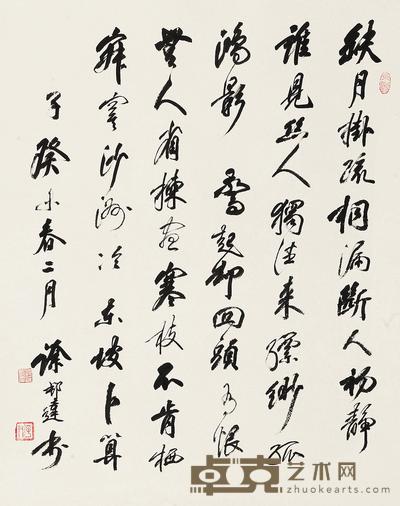 缺月掛疏桐漏斷人初靜
誰見幽人獨往來縹緲孤
鴻影 驚起却回頭有恨
無人省揀盡寒枝不肯栖
寂寞沙洲冷 東坡卜算
子癸未春二月 徐邦達書
卓克艺术网
zhuokearts.com